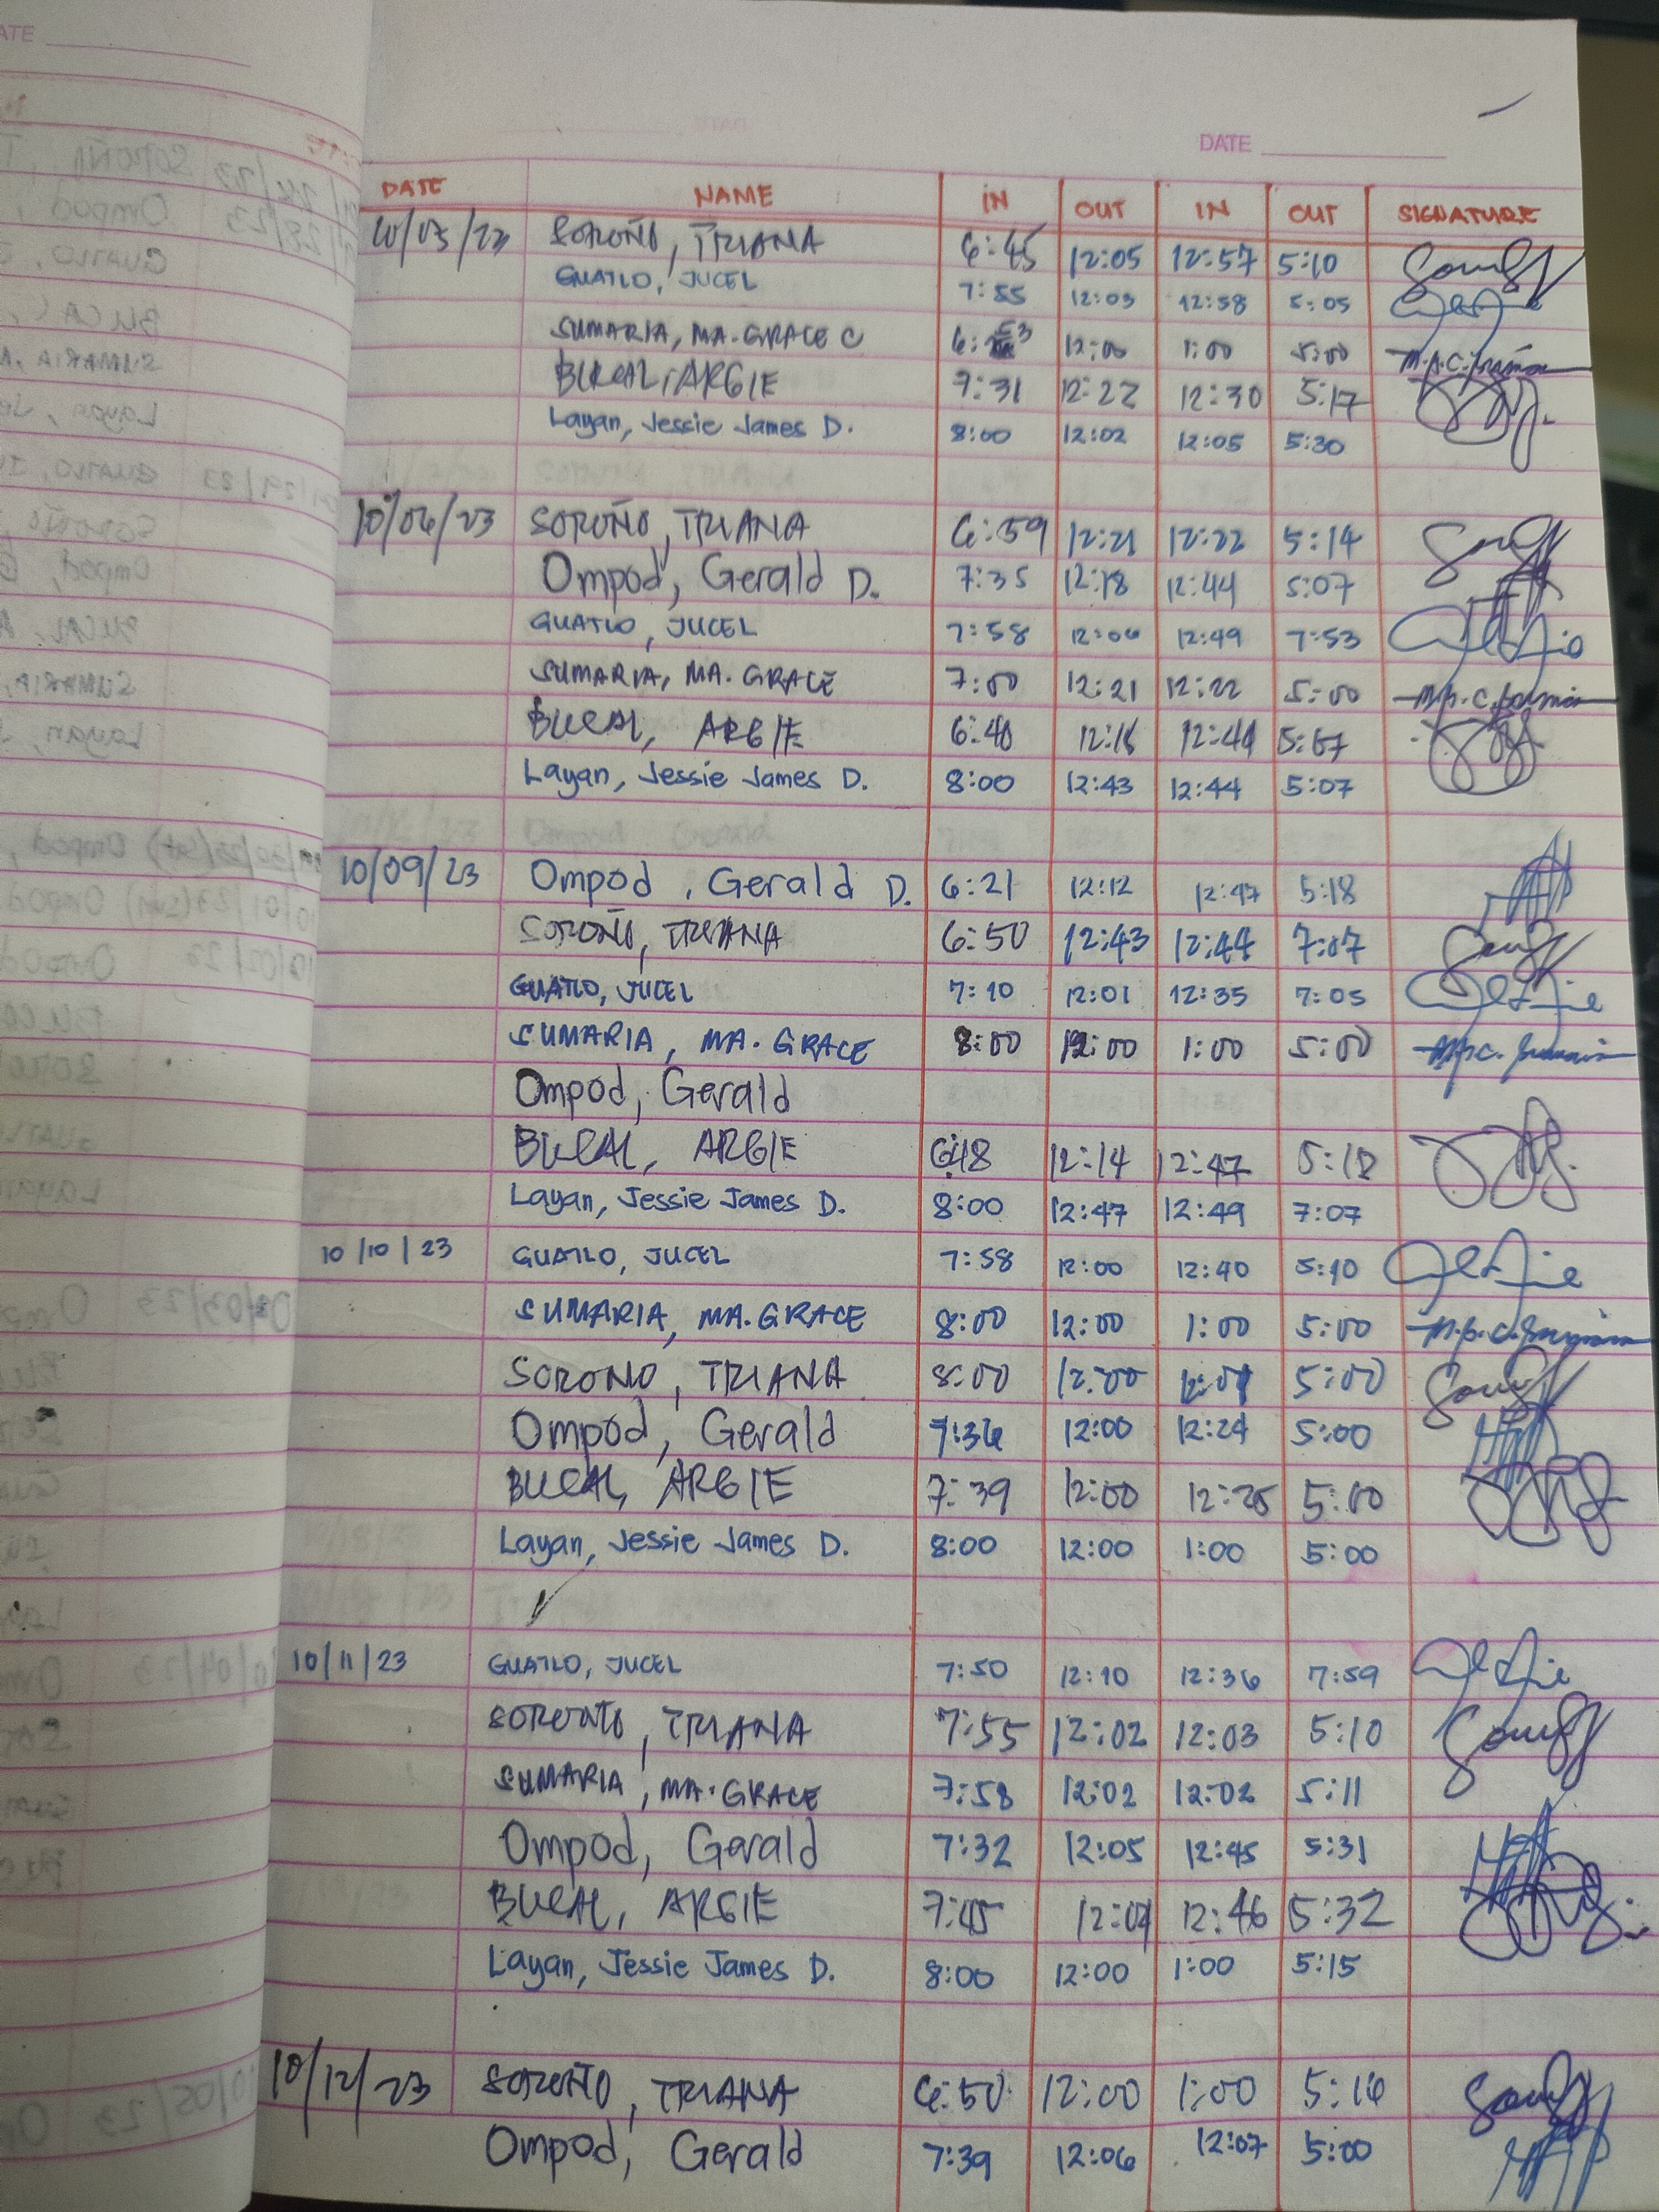 DATE
DATE NAME IN OUT IN OUT SIGNATURE
SOROÑO, TRIANA 6:45 12:05 12:57 5:10
GUATLO, JUCEL 7:55 12:03 12:58 5:05
SUMARIA, MA. GRACE C 12:00 1:00 5:00
BUCAL, ARGIE 7:31 12:22 12:30 5:17
Layan, Jessie James D. 8:00 12:02 12:05 5:30
10/06/23 SOROÑO, TRIANA 6:59 12:21 12:22 5:14
Ompod, Gerald D. 7:35 12:18 12:44 5:07
GUATLO, JUCEL 7:58 12:06 12:49 7:53
SUMARIA, MA. GRACE 7:00 12:21 12:22 5:00
BUCAL, ARGIE 6:40 12:44
Layan, Jessie James D. 8:00 12:43 12:44 5:07
10/09/23 Ompod, Gerald D. 6:21 12:12 12:47 5:18
SOROÑO, TRIANA 6:50 12:43 12:44 7:07
GUATLO, JUCEL 7:10 12:01 12:35 7:05
SUMARIA, MA. GRACE 8:00 12:00 1:00 5:00
Ompod, Gerald
BUCAL, ARGIE 6:48 12:14 12:47 5:18
Layan, Jessie James D. 8:00 12:47 12:49 7:07
10/10/23 GUATLO, JUCEL 7:58 12:00 12:40 5:10
SUMARIA, MA. GRACE 8:00 12:00 1:00 5:00
SOROÑO, TRIANA 8:00 12:00 5:00
Ompod, Gerald 7:36 12:00 12:24 5:00
BUCAL, ARGIE 7:39 12:00 12:25 5:00
Layan, Jessie James D. 8:00 12:00 1:00 5:00
10/11/23 GUATLO, JUCEL 7:50 12:10 12:36 7:59
SOROÑO, TRIANA 7:55 12:02 12:03 5:10
SUMARIA, MA. GRACE 7:58 12:02 12:02 5:11
Ompod, Gerald 7:32 12:05 12:45 5:31
BUCAL, ARGIE 7:45 12:07 12:46 5:32
Layan, Jessie James D. 8:00 12:00 1:00 5:15
10/12/23 SOROÑO, TRIANA 6:50 12:00 1:00 5:16
Ompod, Gerald 7:39 12:06 12:07 5:00